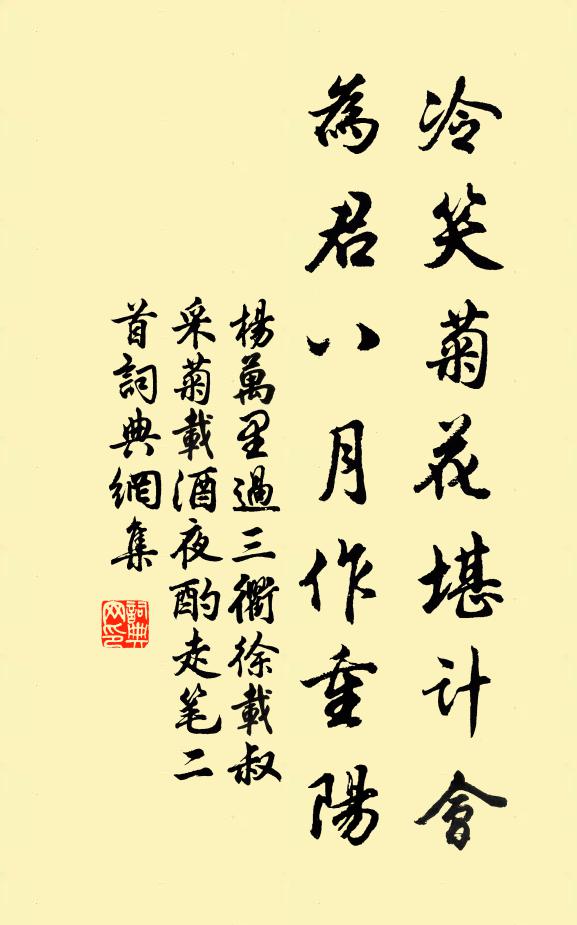 冷笑菊花堪計會
為君八月作重陽
楊萬里過三衢徐載叔
采菊載酒夜酌走笔二
首詞典網集
詞典
网印